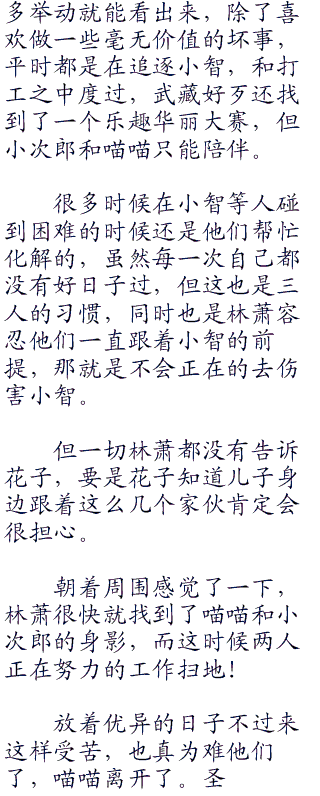 多举动就能看出来，除了喜
欢做一些毫无价值的坏事，
平时都是在追逐小智，和打
工之中度过，武藏好歹还找
到了一个乐趣华丽大赛，但
小次郎和喵喵只能陪伴。
很多时候在小智等人碰
到困难的时候还是他们帮忙
化解的，虽然每一次自己都
没有好日子过，但这也是三
人的习惯，同时也是林萧容
忍他们一直跟着小智的前
提，那就是不会正在的去伤
害小智。
但一切林萧都没有告诉
花子，要是花子知道儿子身
边跟着这么几个家伙肯定会
很担心。
朝着周围感觉了一下，
林萧很快就找到了喵喵和小
次郎的身影，而这时候两人
正在努力的工作扫地！
放着优异的日子不过来
这样受苦，也真为难他们
了，喵喵离开了。圣